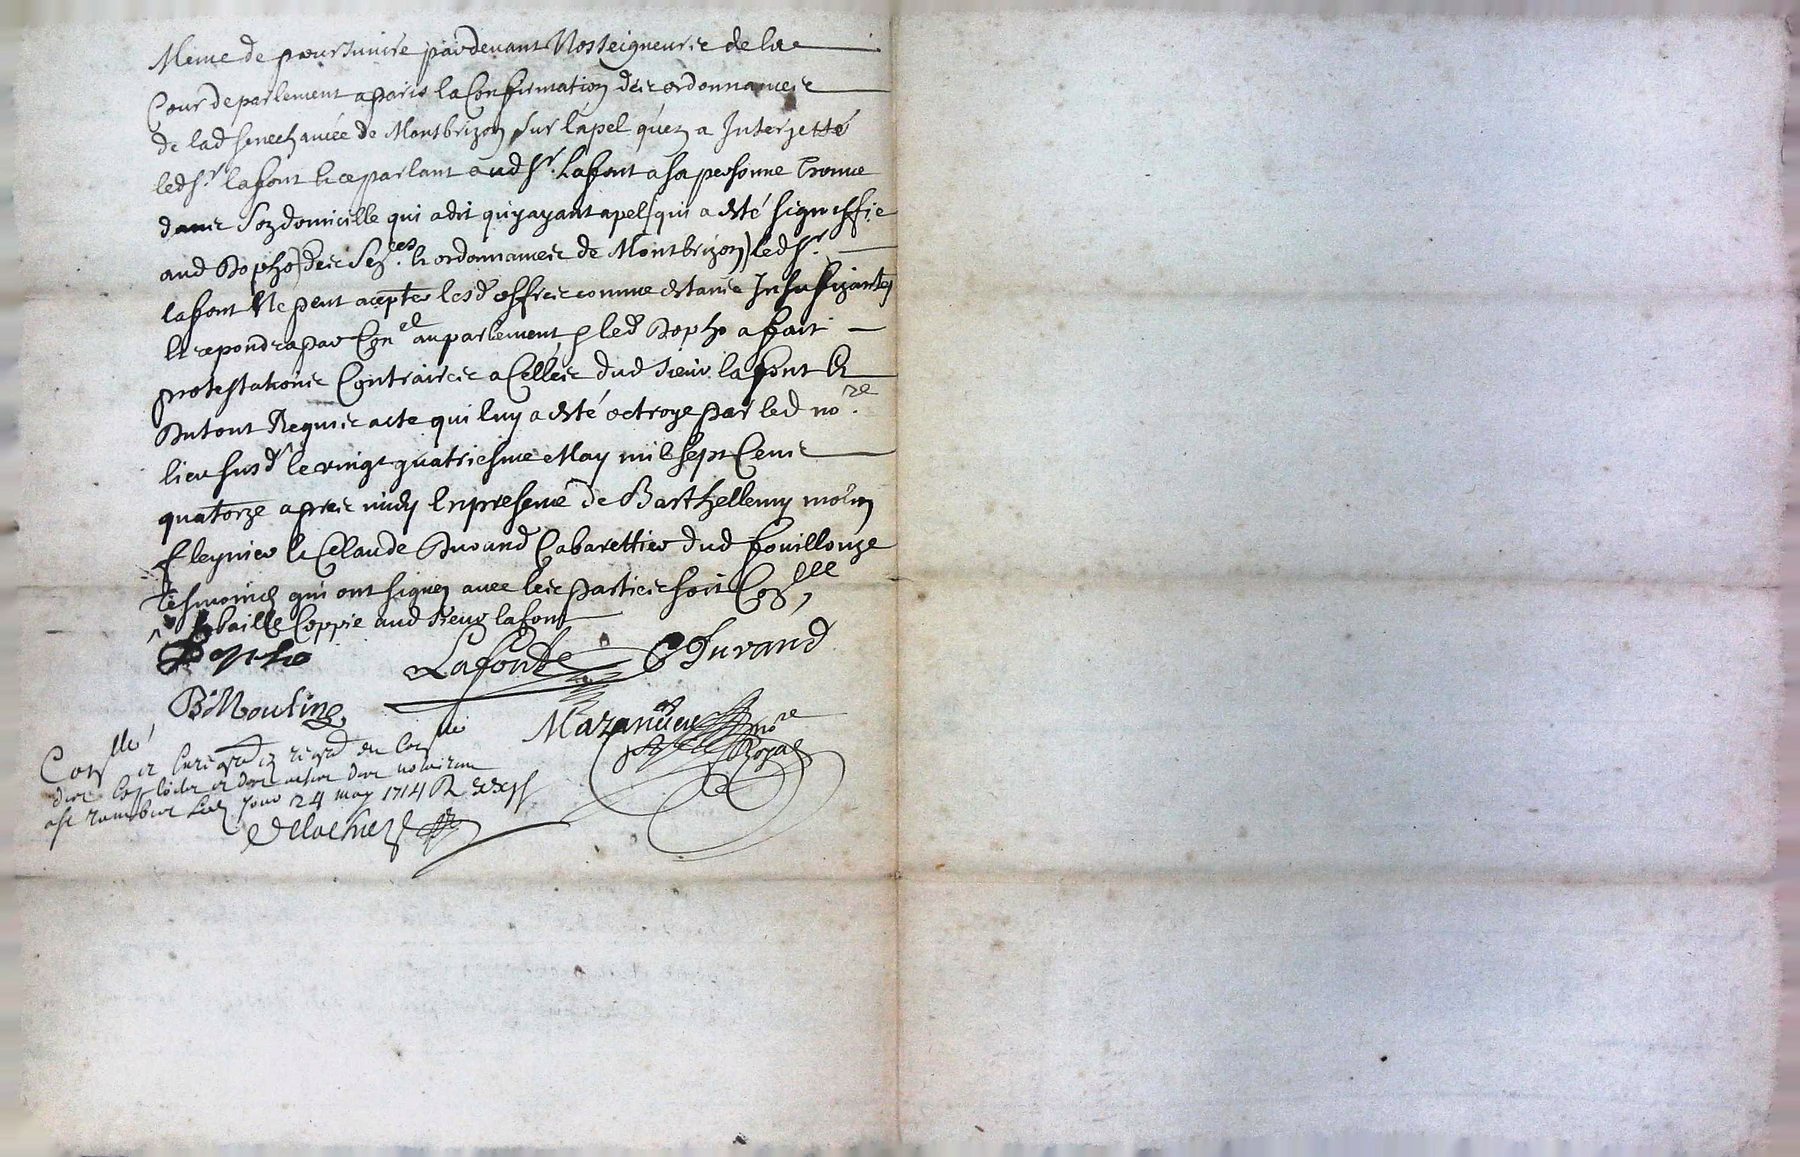 Meme de poursuivre pardevant Nosseigneurs de la
Cour de parlement a paris la Confirmation des ordonnances
de lad senechaucée de Montbrizon sur l'apel qu'en a Interjetté
led sr. lafont Et ce parlant aud sr. Lafont a sa personne trouvé
dans son domicille qui a dit qu'y ayant apel (qui a esté signiffie
aud Bopho) des ses. Et ordonnances de Montbrizon) led sr.
lafont Ne peut accepter lesd offres comme estants Insufizantes
Et repondra par Con.el au parlement, led Bopho a fait
protestations Contraires a Celles dud sieur lafont Et
du tout Requis acte qui luy a esté octroye par led no.re
lieu susd le vingt quatriesme May mil sept Cens
quatorze apres midy En presence de Barthellemy molin
Claude Durand Cabarettier dud fouillouze
tesmoins qui ont signez avec les parties soit Con.lle
baille Coppie aud sieur lafont
Bopho Lafont C Durand
B Moulin
Mazandieu no.re Royal
Con.lle
24 may 1714 R